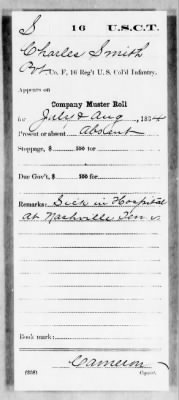 S 16 U.S.C.T.
Charles Smith
Pvt, Co. F, 16 Reg't U. S. Col'd Infantry.
Appears on
Company Muster Roll
for July & Aug, 1864
Present or absent Absent
Stoppage, $ 100 for
Due Gov't, $ 100 for
Remarks: Sick in Hospital
at Nashville Tenn
Book mark:
Cameron
(358) Copyist.